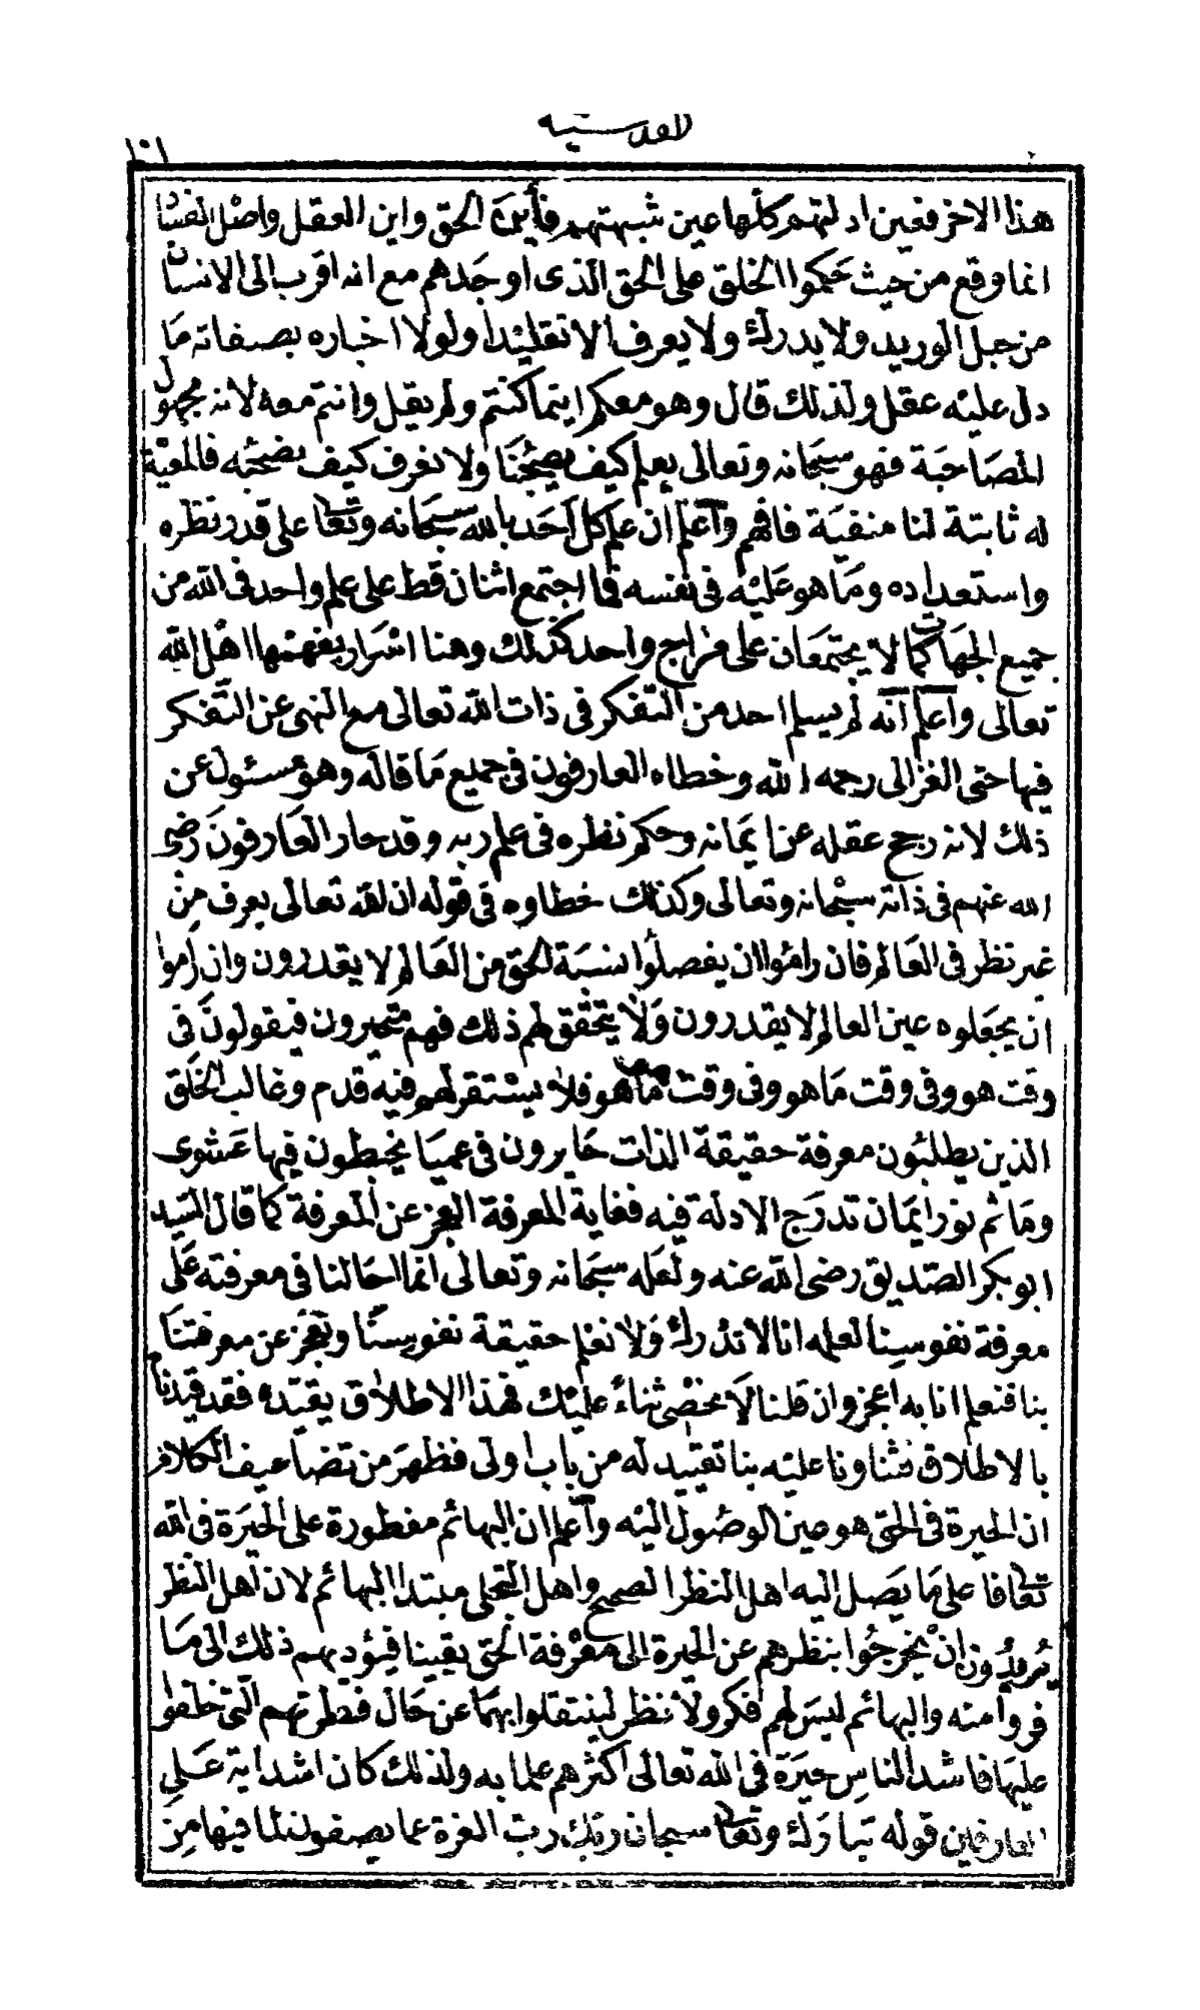 القدسية
١٠١
هذا الاخر فعين ادلتهم كلها عين شبهتهم فأين الحق واين العقل واصل الفساد
انما وقع من حيث حكموا الخلق على الحق الذى اوجدهم مع انه اقرب الى الانسان
من حبل الوريد ولا يدرك ولا يعرف الا تقليدا ولولا اخباره بصفاته ما
دل عليه عقل ولذلك قال وهو معكم اينما كنتم ولم يقل وانتم معه لانه مجهول
المصاحبة فهو سبحانه وتعالى يعلم كيف يصحبنا ولا نعرف كيف نصحبه فالمعية
له ثابتة لنا منفية فافهم واعلم ان علم كل احد بالله سبحانه وتعالى على قدر نظره
واستعداده وما هو عليه فى نفسه فما اجتمع اثنان قط على علم واحد فى الله من
جميع الجهات كما لا يجتمعان على مزاج واحد كذلك وهنا اسرار يفهمها اهل الله
تعالى واعلم انه لم يسلم احد من التفكر فى ذات الله تعالى مع النهى عن التفكر
فيها حتى الغزالى رحمه الله وخطاه العارفون فى جميع ما قاله وهو مسئول عن
ذلك لانه رجح عقله عن ايمانه وحكم نظره فى علم ربه وقد حار العارفون رضى
الله عنهم فى ذاته سبحانه وتعالى وكذلك خطاوه فى قوله ان الله تعالى يعرف من
غير نظر فى العالم فان راموا ان يفصلوا نسبة الحق من العالم لا يقدرون وان راموا
ان يجعلوه عين العالم لا يقدرون ولا يتحقق لهم ذلك فهم متحيرون فيقولون فى
وقت هو وفى وقت ما هو وفى وقت هو ما هو فلا يستقر لهم فيه قدم وغالب الخلق
الذين يطلبون معرفة حقيقة الذات حايرون فى عميا يخبطون فيها عشوى
وما ثم نور ايمان تدرج الادلة فيه فغاية المعرفة العجز عن المعرفة كما قال السيد
ابو بكر الصديق رضى الله عنه ولعله سبحانه وتعالى انما احالنا فى معرفته على
معرفة نفوسنا لعلمه انا لا ندرك ولا نعلم حقيقة نفوسنا ونعجز عن معرفتنا
بنا فنعلم انا به اعجز وان قلنا لا نحصى ثناء عليك فهذا الاطلاق يقيده فقد قيدناه
بالاطلاق فثناونا عليه بنا تقييد له من باب اولى فظهر من تضاعيف الكلام
ان الحيرة فى الحق هو عين الوصول اليه واعلم ان البهائم مفطورة على الحيرة فى الله
تعالى فاعلى ما يصل اليه اهل النظر الصحيح واهل التجلى مبتدا البهائم لان اهل النظر
يريدون ان يخرجوا بنظرهم عن الحيرة الى معرفة الحق يقينا فيؤديهم ذلك الى ما
فروا منه والبهائم ليس لهم فكر ولا نظر لينتقلوا بهما عن حال فطرتهم التى خلقوا
عليها فاشد الناس حيرة فى الله تعالى اكثرهم علما به ولذلك كان اشد اية على
العارفين قوله تبارك وتعالى سبحان ربك رب العزة عما يصفون لما فيها من